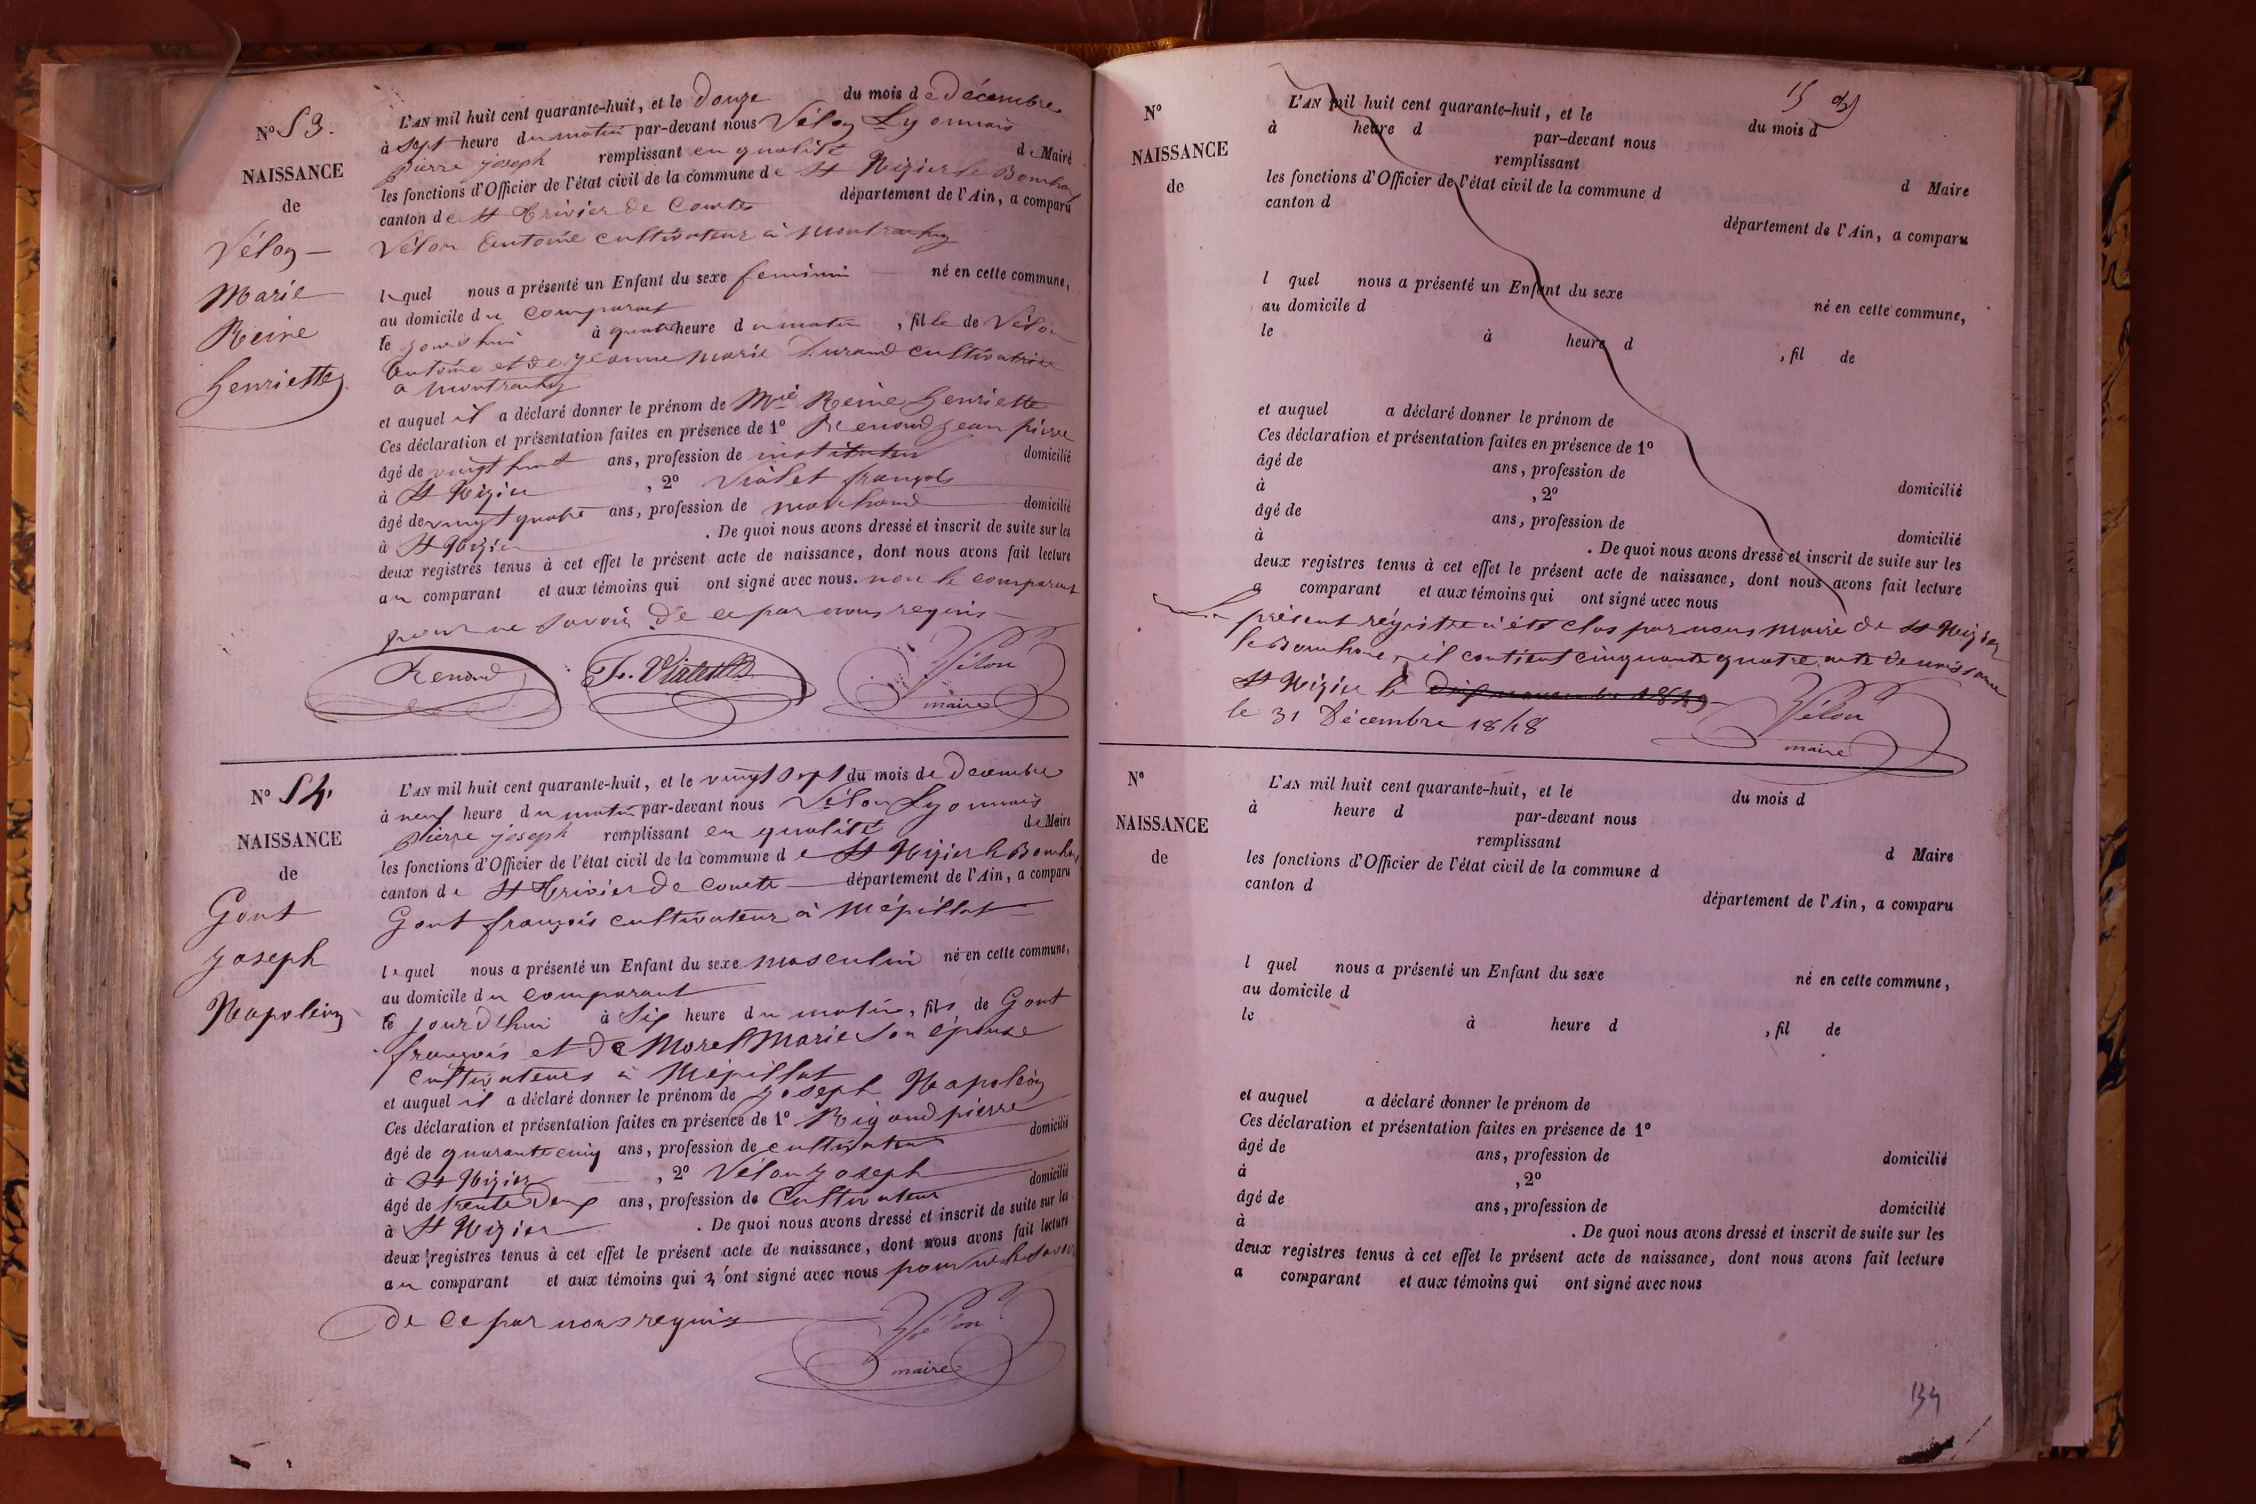 N° 53.
NAISSANCE
de
Vélon
Marie
Reine
henriette
L'AN mil huit cent quarante-huit, et le douze du mois de Décembre
à sept heure du matin par-devant nous Vélon Lyonnais
pierre joseph remplissant en qualité de Maire
les fonctions d'Officier de l'état civil de la commune de St Nizier le Bouchoux
canton de St Trivier de Courtes département de l'Ain, a comparu
Vélon Antoine cultivateur à
lequel nous a présenté un Enfant du sexe feminin né en cette commune,
au domicile du comparant
le jourdhui à quatre heure du matin, fille de Vélon
Antoine et de jeanne Marie Durand cultivatrice
a
et auquel il a déclaré donner le prénom de Mie Reine henriette
Ces déclaration et présentation faites en présence de 1° Renoud jean pierre
âgé de vingt huit ans, profession de instituteur domicilié
à St Nizier, 2° Violet françois
âgé de vingt quatre ans, profession de marchand domicilié
à St Nizier. De quoi nous avons dressé et inscrit de suite sur les
deux registres tenus à cet effet le présent acte de naissance, dont nous avons fait lecture
au comparant et aux témoins qui ont signé avec nous. non le comparant
pour ne savoir de ce par nous requis
Renoud
Vélon
maire
N° 54.
NAISSANCE
de
Gout
joseph
Napoléon
L'AN mil huit cent quarante-huit, et le vingt sept du mois de Decembre
à neuf heure du matin par-devant nous Vélon Lyonnais
pierre joseph remplissant en qualité de Maire
les fonctions d'Officier de l'état civil de la commune de St Nizier le Bouchoux
canton de St Trivier de Courte département de l'Ain, a comparu
Gout françois cultivateur à Mépillat
lequel nous a présenté un Enfant du sexe masculin né en cette commune,
au domicile du comparant
le jourdhui à Six heure du matin, fils de Gout
françois et de Morel Marie Son épouse
cultivateurs à Mépillat
et auquel il a déclaré donner le prénom de joseph Napoléon
Ces déclaration et présentation faites en présence de 1° Rigaud pierre
âgé de quarante cinq ans, profession de cultivateur domicilié
à St Nizier, 2° Vélon joseph
âgé de trente deux ans, profession de Cultivateur domicilié
à St Nizier. De quoi nous avons dressé et inscrit de suite sur les
deux registres tenus à cet effet le présent acte de naissance, dont nous avons fait lecture
au comparant et aux témoins qui n'ont signé avec nous pour ne le savoir
de ce par nous requis
Vélon
maire
15
N°
NAISSANCE
de
L'AN mil huit cent quarante-huit, et le du mois d
à heure d par-devant nous
remplissant d Maire
les fonctions d'Officier de l'état civil de la commune d
canton d département de l'Ain, a comparu
l quel nous a présenté un Enfant du sexe né en cette commune,
au domicile d
le à heure d , fil de
et auquel a déclaré donner le prénom de
Ces déclaration et présentation faites en présence de 1°
âgé de ans, profession de domicilié
à , 2°
âgé de ans, profession de domicilié
à . De quoi nous avons dressé et inscrit de suite sur les
deux registres tenus à cet effet le présent acte de naissance, dont nous avons fait lecture
a comparant et aux témoins qui ont signé avec nous
Le présent régistre a été clos par nous Maire de St Nizier
le Bouchoux, il contient cinquante quatre acte de naissance
St Nizier le
le 31 Décembre 1848
Vélon
maire
N°
NAISSANCE
de
L'AN mil huit cent quarante-huit, et le du mois d
à heure d par-devant nous
remplissant d Maire
les fonctions d'Officier de l'état civil de la commune d
canton d département de l'Ain, a comparu
l quel nous a présenté un Enfant du sexe né en cette commune,
au domicile d
le à heure d , fil de
et auquel a déclaré donner le prénom de
Ces déclaration et présentation faites en présence de 1°
âgé de ans, profession de domicilié
à , 2°
âgé de ans, profession de domicilié
à . De quoi nous avons dressé et inscrit de suite sur les
deux registres tenus à cet effet le présent acte de naissance, dont nous avons fait lecture
a comparant et aux témoins qui ont signé avec nous
134